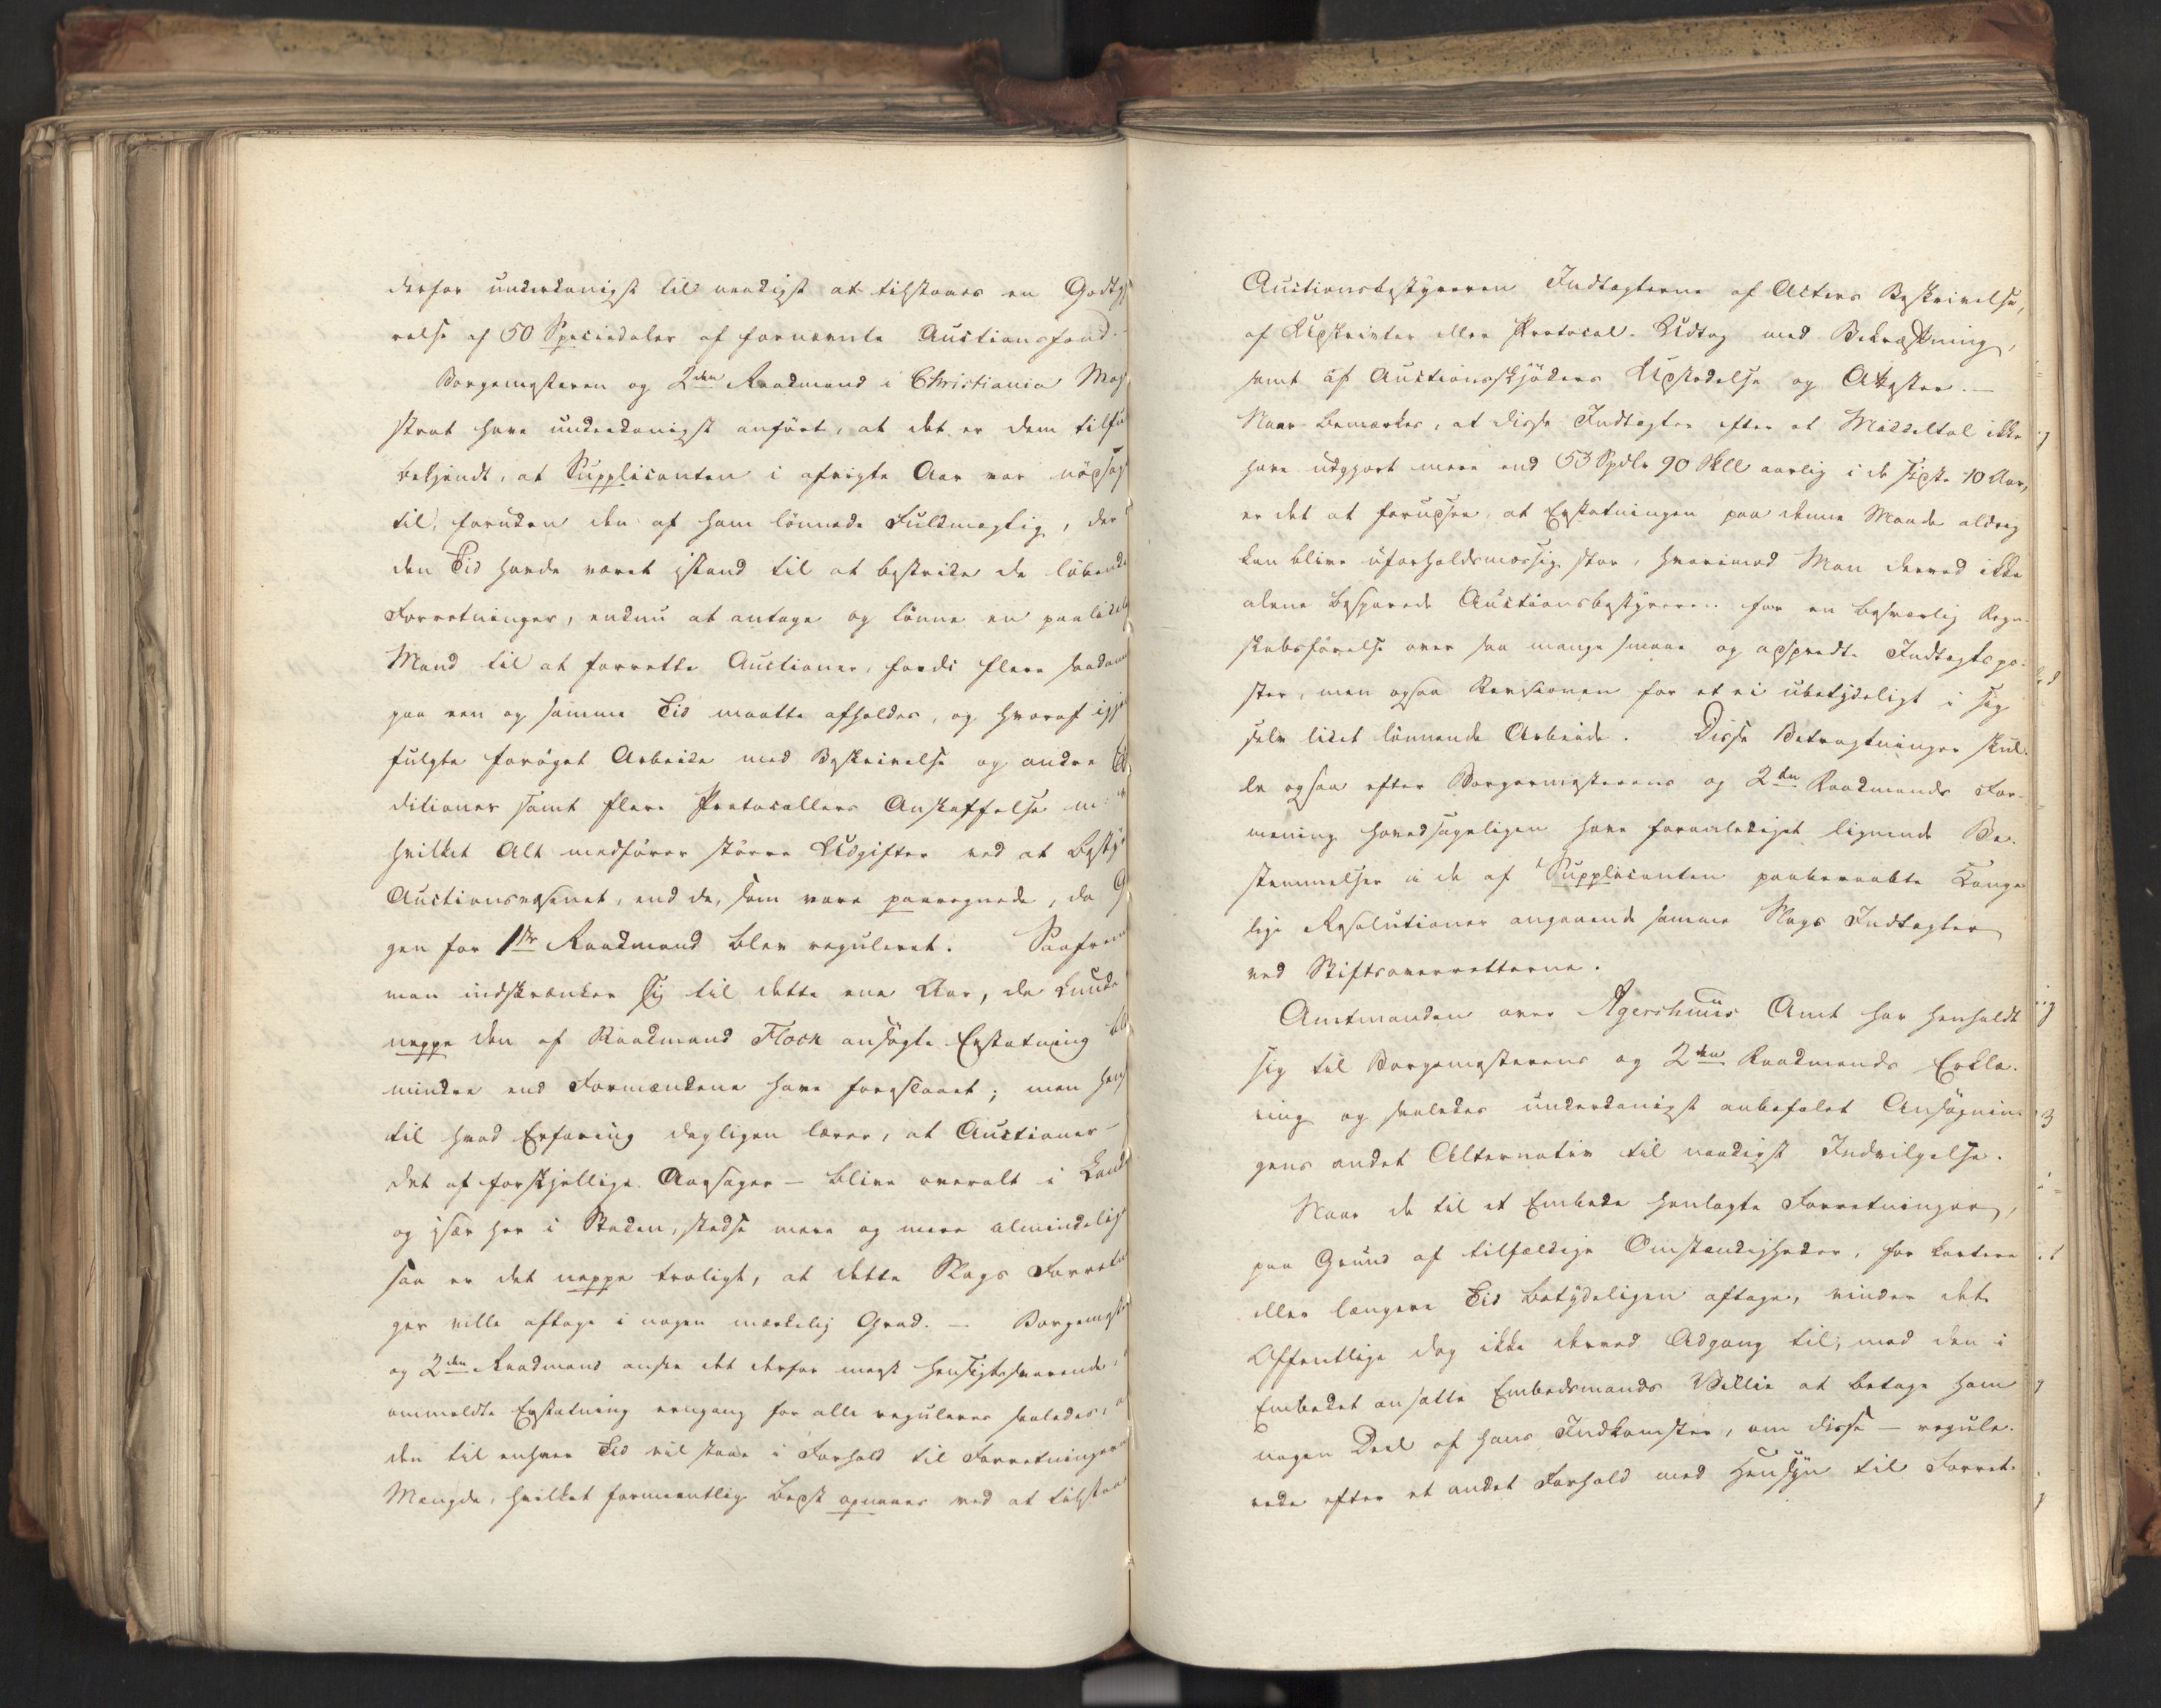 derfor underdanigst til naadigst at tilstaaes en Godtgj
relse af 50 Speciedaler af fornævnte Auctionsfond.
Borgemesteren og 2den Raadmand i Christiania Mag
strat have underdanigst anført, at det er dem tilfu
bekjendt, at Supplicanten i afvigte Aar var nødsag
til, foruden den af ham lønnede Fuldmægtig, der
den Tid havde været istand til at bestride de løbende
Forretninger, endnu at antage og lønne en paalidel
Mand til at forrette Auctioner, fordi flere saadanne
paa een og samme Tid maatte afholdes, og hvoraf igj
fulgte forøget Arbeide med Beskrivelse og andre Ex
ditioner samt flere Protocollers Anskaffelse m:
hvilket Alt medfører større Udgifter ved at besty
Auctionsvæsenet, end de, som vare paaregnede, da G
gen for 1ste Raadmand blev reguleret. Saafrem
man indskrænker sig til dette ene Aar, da kunde
neppe den af Raadmand Flock ansøgte Erstatning bli
mindre end Formændene have foreslaaet; men hen
til hvad Erfaring dagligen lærer, at Auctioner -
det af forskjellige Aarsager - blive overalt i Land
og især her i Staden, stedse mere og mere almindelige
saa er det neppe troligt, at dette Slags Forretn
ger ville aftage i nogen mærkelig Grad. - Borgemest
og 2den Raadmand ansee det derfor meest hensigtssvarende,
ommeldte Erstatning eengang for alle reguleres saaledes, a
den til enhver Tid vil staae i Forhold til Forretningern
Mængde, hvilket formeentlig bedst opnaaes ved at tilstaa
Auctionsbestyreren Indtægterne af Acters Beskrivelse,
af Udskrivter eller Protocol-Udtog med Bekræftning,
samt af Auctionsskjøders Udstedelse og Attester. -
Naar bemærkes, at disse Indtægter efter et Middeltal ikke
have udgjort mere end 53 Spdlr 90 Skll aarlig i de sidste 10 Aar,
er det at forudsee, at Erstatningen paa denne Maade aldrig
kan blive uforholdsmæssig stor, hvorimod Man derved ikke
alene besparede Auctionsbestyreren for en besværlig Regn-
skabsførelse over saa mange smaae og adspredte Indtægtspo-
ster, men ogsaa Revisionen for et ei ubetydeligt i sig
selv lidet lønnende Arbeide. Disse Betragtninger skul-
de ogsaa efter Borgermesterens og 2den Raadmands For-
mening hovedsageligen have foranlediget lignende Be-
stemmelser i de af Supplicanten paaberaabte Konge
lige Resolutioner angaaende samme Slags Indtægter
ved Stiftsoverretterne.
Amtmanden over Agershuus Amt har henholdt
sig til Borgemesterens og 2den Raadmands Erklæ-
ring og saaledes underdanigst anbefalet Ansøgnin-
gens andet Alternativ til naadigst Indvilgelse.
Naar de til et Embede henlagte Forretninger,
paa Grund af tilfældige Omstændigheder, for kortere
eller længere Tid betydeligen aftage, vinder det
Offentlige dog ikke derved Adgang til, mod den i
Embedet ansatte Embedsmands Villie at betage ham
nogen Deel af hans Indkomster, om disse - regule-
rede efter et andet Forhold med Hensyn til Forret-